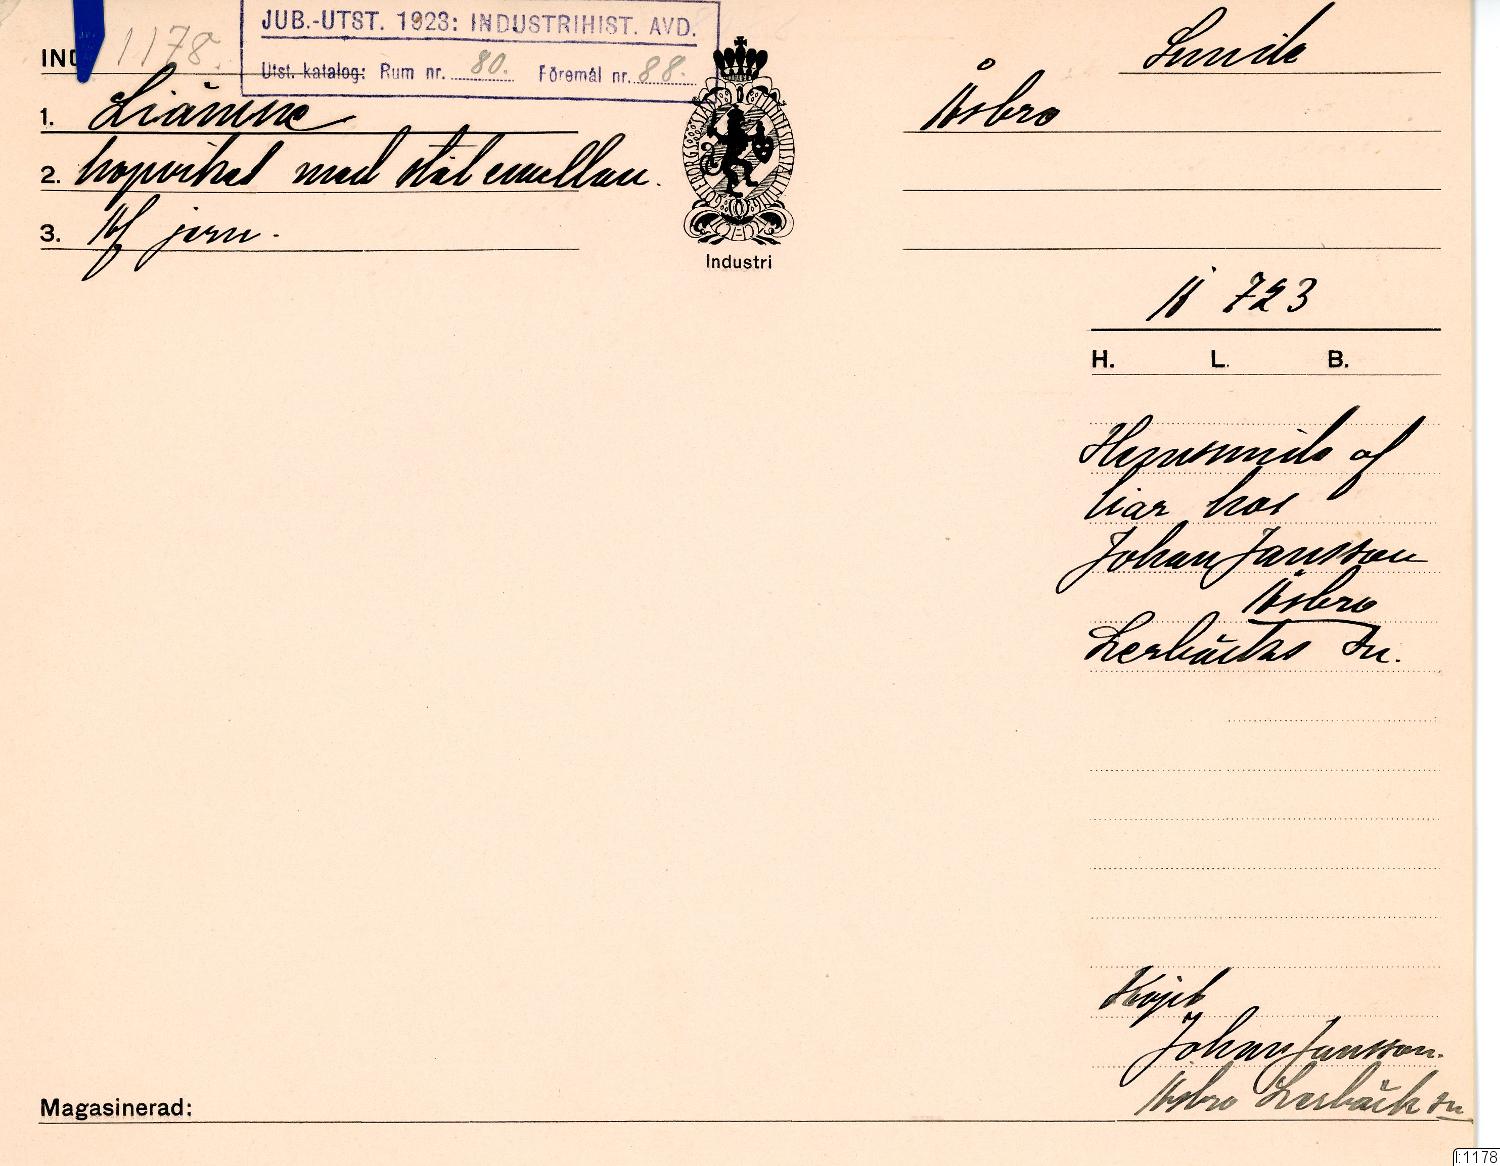 JUB.-UTST. 1923: INDUSTRIHIST. AVD.
Utst. katalog: Rum nr. 80. Föremål nr. 88.
IND 1178.
Smide
1. Liämne
Åsbro
2. hopviket med stål emellan.
3. Af jern.
Industri
Å 723
H. L. B.
Hemsmide af
liar hos
Johan Jansson
Åsbro
Lerbäcks sn.
Köpt
Johan Jansson.
Åsbro Lerbäck sn
Magasinerad:
I:1178